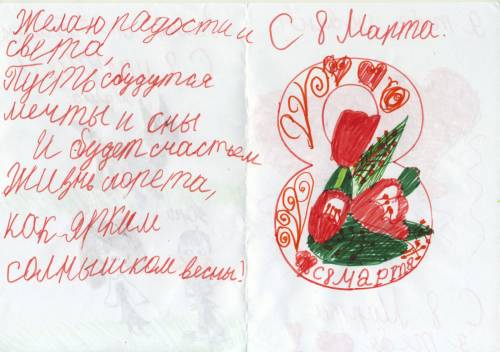 Желаю радости и
света,
Пусть сбудутся
мечты и сны
И будет счастьем
Жизнь согрета,
как ярким
солнышком весны!
С 8 Марта.
С 8 марта